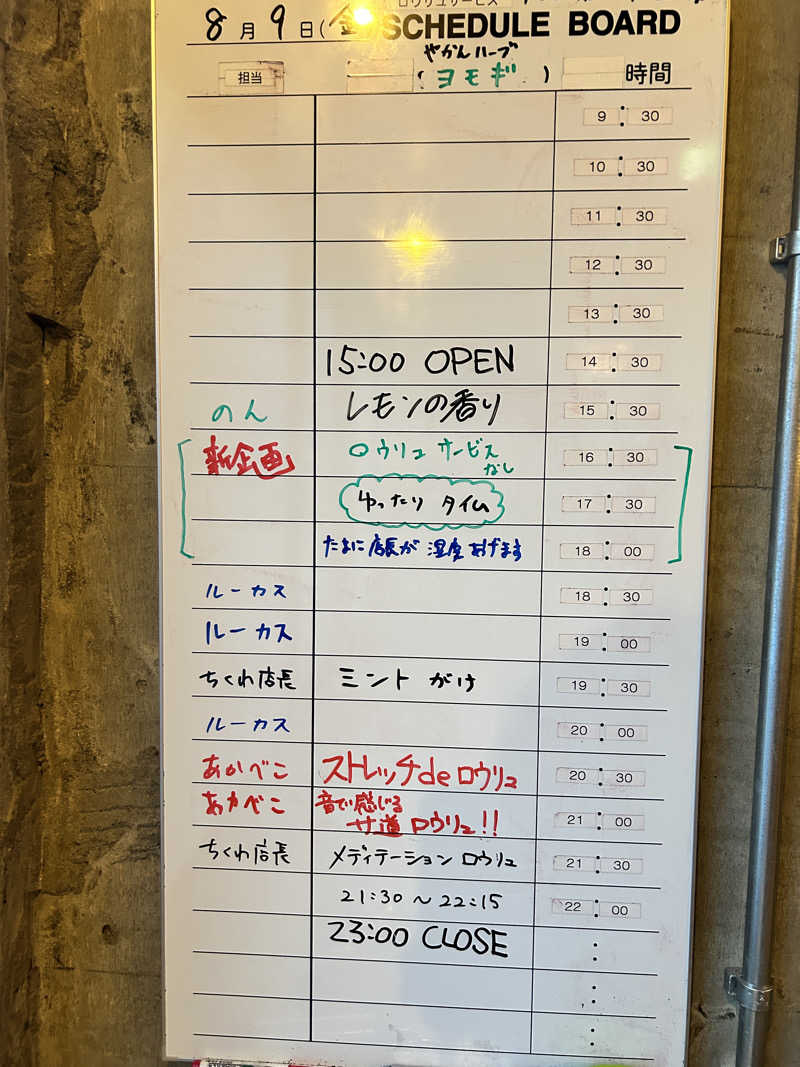 ロウリュサービス
8月9日(金) SCHEDULE BOARD
やかんハーブ
担当 (ヨモギ) 時間
9:30
10:30
11:30
12:30
13:30
15:00 OPEN 14:30
のん レモンの香り 15:30
新企画 ロウリュサービス なし 16:30
ゆったりタイム 17:30
たまに店長が湿度あげます 18:00
ルーカス 18:30
ルーカス 19:00
ちくわ店長 ミントがけ 19:30
ルーカス 20:00
あかべこ ストレッチdeロウリュ 20:30
あかべこ 音で感じる 21:00
サ道ロウリュ!!
ちくわ店長 メディテーションロウリュ 21:30
21:30〜22:15 22:00
23:00 CLOSE :
:
: